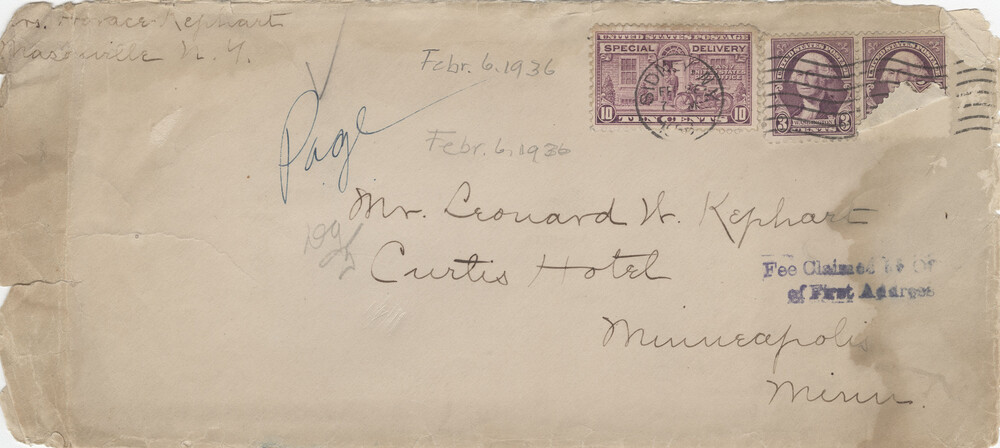 Mrs. Horace Kephart
Masonville N. Y.
Febr. 6. 1936
Page
Febr. 6, 1936
UNITED STATES POSTAGE
SPECIAL DELIVERY
10 10
SIDNEY N.Y.
UNITED STATES POSTAGE
3 3
UNITED STATES POSTAGE
Mr. Leonard W. Kephart
Curtis Hotel
Minneapolis
Minn.
Fee Claimed by Of
of First Address